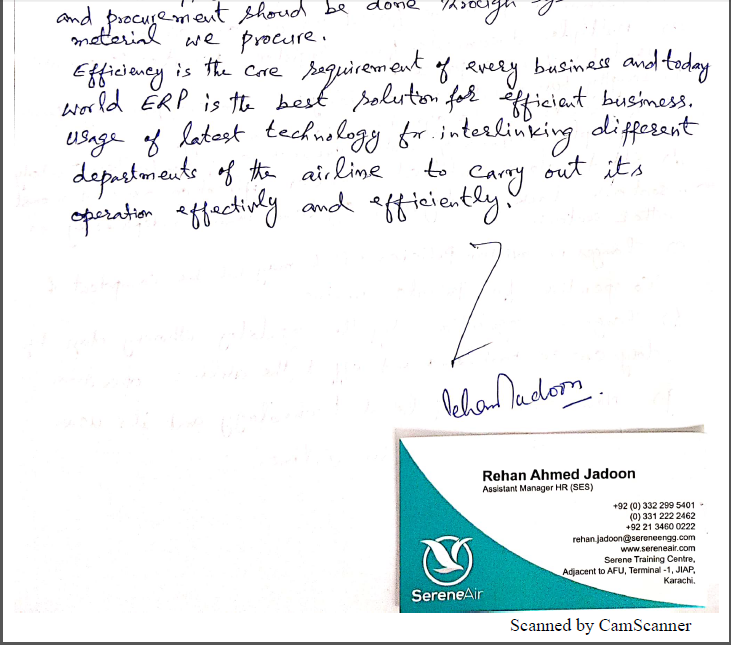 and procurement should be done through
meterial we procure.
Efficiency is the core requirement of every business and today
world ERP is the best solution for efficient business.
usage of latest technology for interlinking different
departments of the airline to carry out its
operation effectivly and efficiently.
Rehan Jadoon.
Rehan Ahmed Jadoon
Assistant Manager HR (SES)
+92 (0) 332 299 5401
(0) 331 222 2462
+92 21 3460 0222
rehan.jadoon@sereneengg.com
www.sereneair.com
Serene Training Centre,
Adjacent to AFU, Terminal -1, JIAP,
Karachi.
SereneAir
Scanned by CamScanner